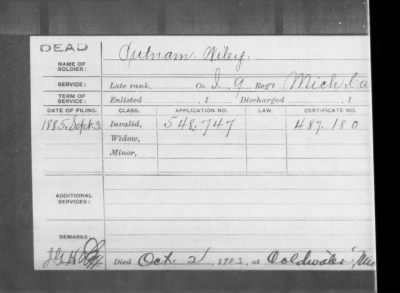 DEAD
NAME OF SOLDIER: Putnam, Wiley.
SERVICE: Late rank, Co. I, 9 Reg't Mich. Ca
TERM OF SERVICE: Enlisted , 1 Discharged , 1
DATE OF FILING. CLASS. APPLICATION NO. LAW. CERTIFICATE NO.
1885, Sept. 3 Invalid, 548,747 487,180
Widow,
Minor,
ADDITIONAL SERVICES:
REMARKS:
Died Oct. 2, 1923, at Coldwater, Mi